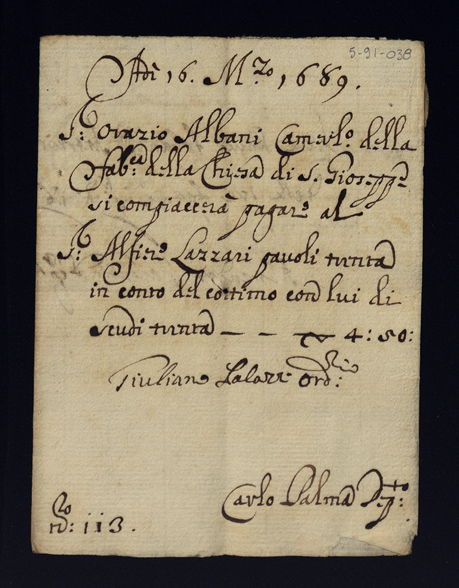 5-91-038
Adi 16. Mzo 1689.
S.r Orazio Albani Camerlo. della
Fabca. della Chiesa di S. Gioseppe
si compiacerà pagare al
S.r Alfiere Lazzari pauoli trenta
in conto del cottimo con lui di
scudi trenta — — 4:50:
Giuliano
Carlo Palma Depto:
no: 113.